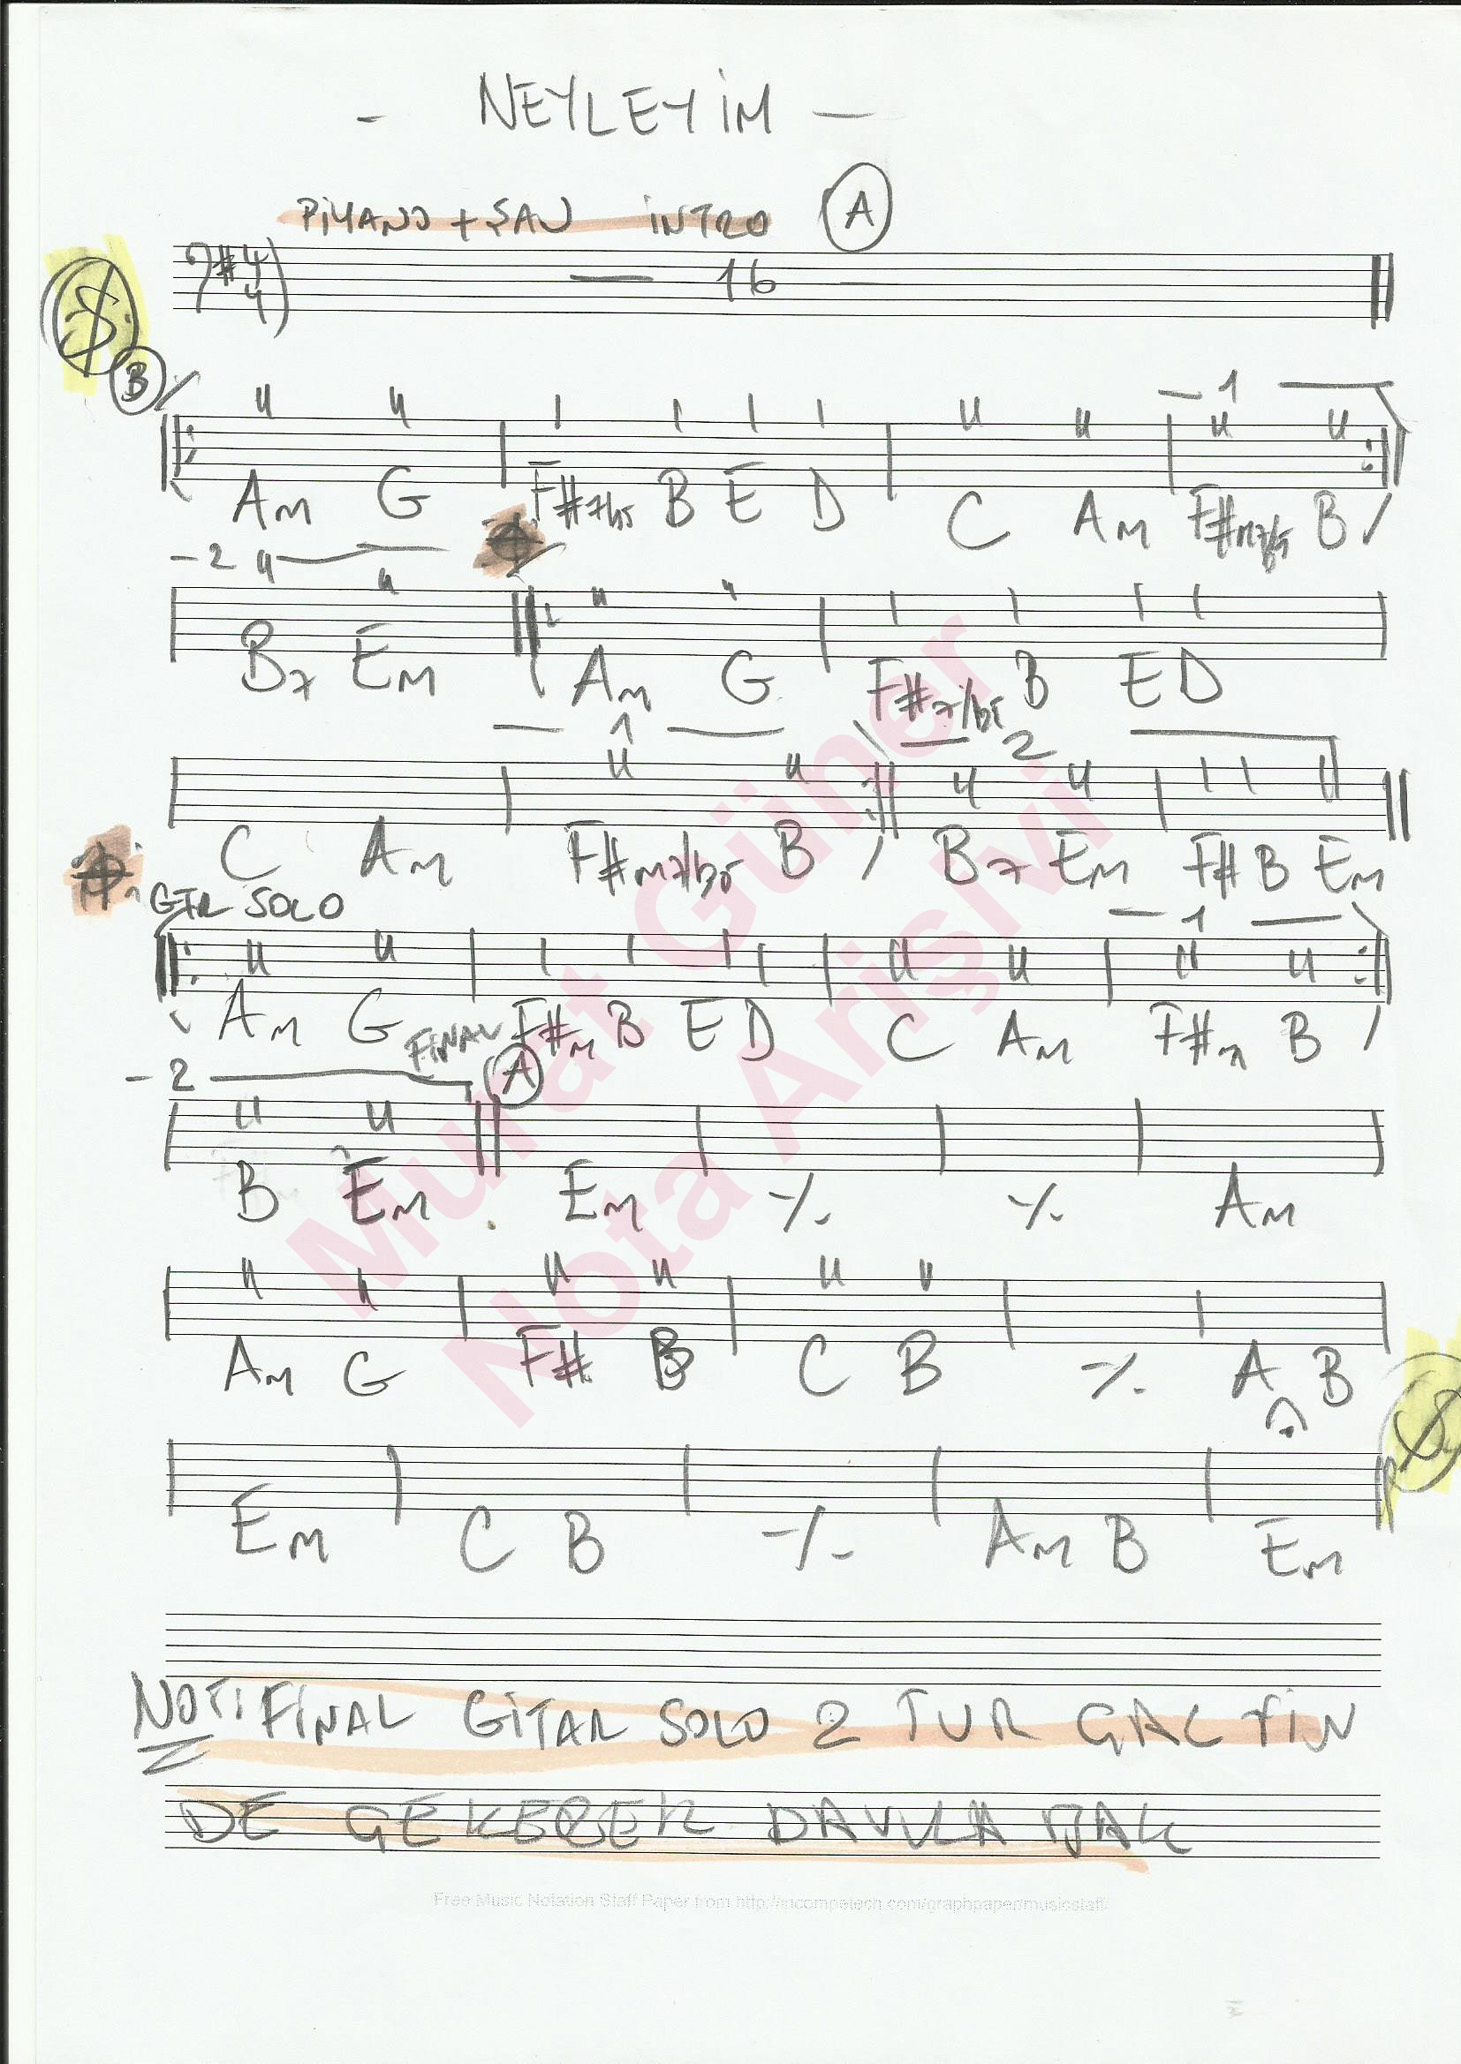 - NEYLEYİM -
PİYANO + ŞAN İNTRO A
4 4 16
B
1
Am G F#7b5 B E D C Am F#m7b5 B
2
B7 Em Am G F#7/b5 B E D
1 2
C Am F#m7b5 B B7 Em F# B Em
GTR SOLO
1
Am G F#m B E D C Am F#m B
2 FINAL A
B Em Em ٪ ٪ Am
Am G F# B C B ٪ A B
Em C B ٪ Am B Em
NOT: FİNAL GİTAR SOLO 2 TUR
DE
Murat Güner
Nota Arişivi
Free Music Notation Staff Paper from http://incompetech.com/graphpaper/musicstaff/